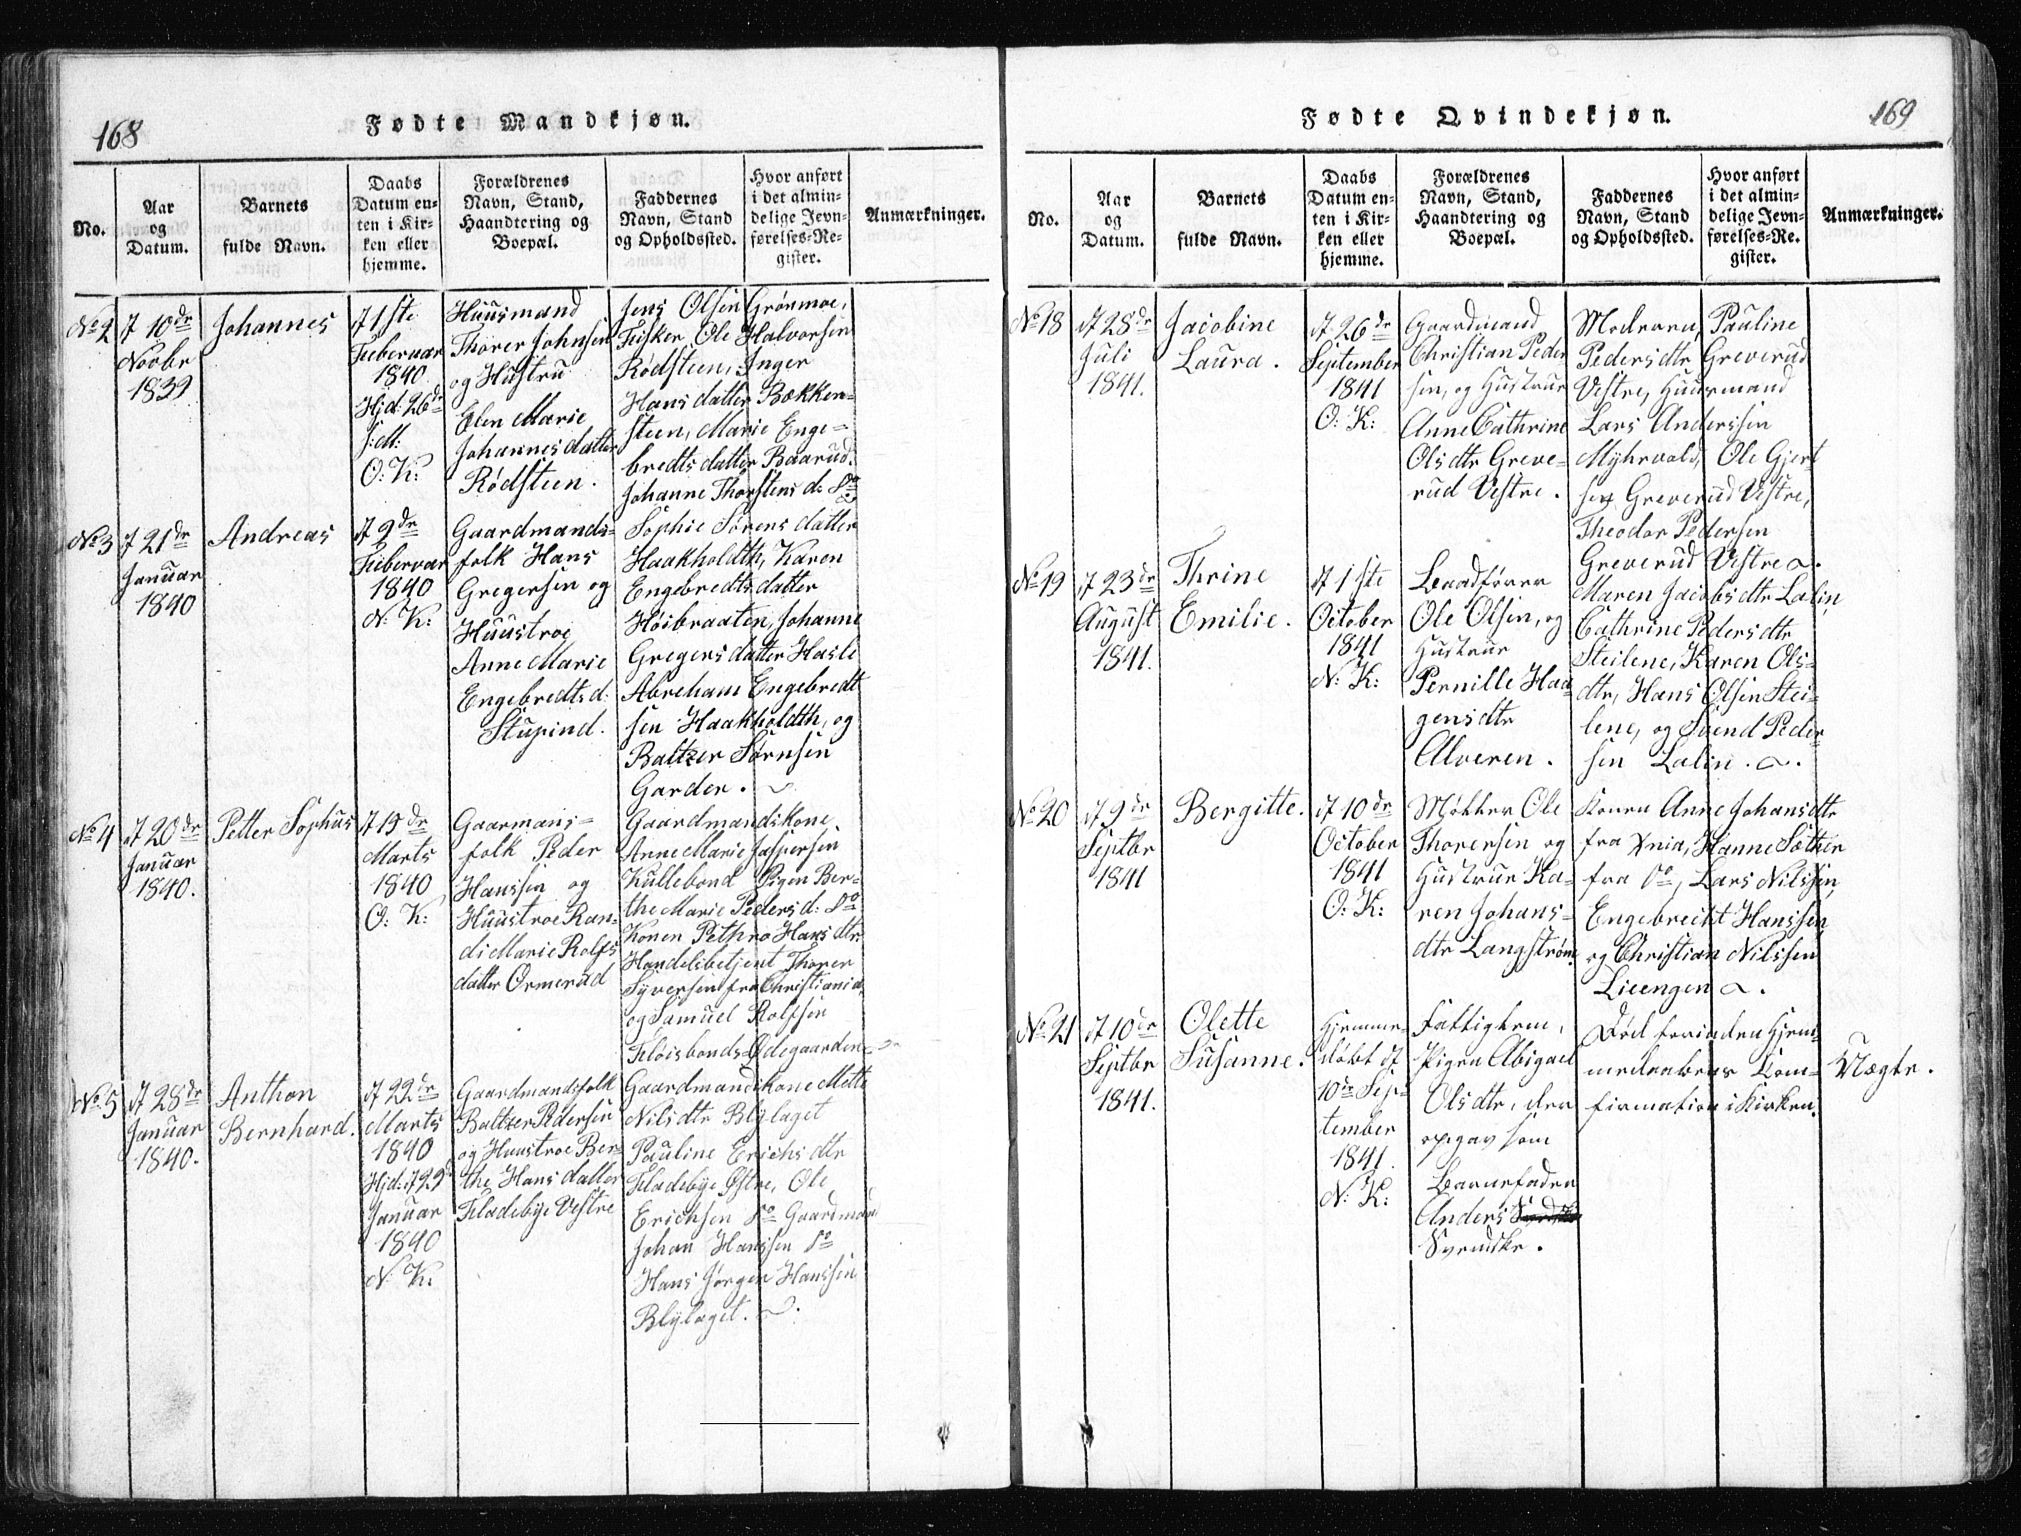 168
Fødte Mandkjøn.
No.
Aar
og
Datum.
Barnets
fulde Navn.
Daabs
Datum en-
ten i Kir-
ken eller
hjemme.
Forældrenes
Navn, Stand,
Haandtering og
Boepæl.
Faddernes
Navn, Stand
og Opholdssted.
Hvor anført
i det almin-
delige Jevn-
førelses-Re-
gister.
Anmærkninger.
No 2
d 10de
Novbr
1839
Johannes
d 1ste
Februar
1840
Hjd: 26de
O: K:
Huusmand
Thorer Johnsen
og Hustru
Elen Marie
Johannesdatter
Rødsteen.
Jens Olsen Grønmoe,
Fisker Ole Halvorsen
Rødsteen, Inger
Hansdatter Bækken-
steen, Marie Enge-
bredtsdatter Baarud.
Johanne Thorstens d: Do
No 3
d 21de
Januar
1840
Andreas
d 9de
Februar
1840
N: K:
Gaardmands-
folk Hans
Gregersen og
Huustroe
Anne Marie
Engebredtsd:
Stupind.
Sophie Sørensdatter
Haakholdth, Karen
Engebredtsdatter
Høibraaten, Johanne
Gregersdatter Hasle
Abreham Engebredt
sen Haakholdth, og
Baltzer Sørnsen
Garder.
No 4
d 20de
Januar
1840.
Petter Sophus
d 15de
Marts
1840
O: K:
Gaarmans-
folk Peder
Hanssen og
Huustroe Ran-
di Marie Rolfs
datter Ormerud
Gaardmandskone
Anne Marie Jaspersen
Kullebond Pigen Ber-
the Marie Peders d: Do
Konen Pethra Hans dtr
Handelsbetjent Thorer
Syversen fra Christiania,
og Samuel Rolfsen
Fløisbonds-Ødegaarden
No 5
d 28de
Januar
1840.
Anthon
Bernhard.
d 22de
Marts
1840
Hjd: d 29d
Januar
1840
N: K:
Gaardmandsfolk
Baltzer Pedersen
og Huustroe Ber-
the Hansdatter
Fladebye Vestre
Gaardmandskone Mette
Nilsdtr Blylaget
Pauline Erichsdtr
Fladebye Østre, Ole
Erichsen Do Gaardmand
Johan Hanssen Do
Hans Jørgen Hanssen
Blylaget.
169
Fødte Qvindekjøn.
No.
Aar
og
Datum.
Barnets
fulde Navn.
Daabs
Datum en-
ten i Kir-
ken eller
hjemme.
Forældrenes
Navn, Stand,
Haandtering og
Boepæl.
Faddernes
Navn, Stand
og Opholdssted.
Hvor anført
i det almin-
delige Jevn-
førelses-Re-
gister.
Anmærkninger.
No 18
d 28de
Juli
1841.
Jacobine
Laura.
d 26de
September
1841
O: K:
Gaardmand
Christian Peder
sen, og Hustrue
Anne Cathrine
Olsdtr Greve-
rud Vestre.
Modren, Pauline
Pedersdtr Greverud
Vestre, Huusmand
Lars Anderssen
Myhrvold, Ole Gjert
sen Greverud Vestre,
Theodor Pedersen
Greverud Vestre
No 19
d 23de
August
1841.
Thrine
Emilie.
d 1ste
October
1841
N: K:
Baadfører
Ole Olsen, og
Hustrue
Pernille Haa-
gensdtr
Alveren.
Maren Jacobsdtr Lalin,
Cathrine Pedersdtr
Steilene, Karen Ols-
dtr, Hans Olsen Stei-
lene, og Svend Peder-
sen Lalin.
No 20
d 9de
Septbr
1841
Bergitte.
d 10de
October
1841
O: K:
Møkker Ole
Thorersen og
Hustrue Ka-
ren Johans-
dtr Langstrøm.
Konen Anne Johansdtr
fra Xnia, Hanne Sæther
fra Do, Lars Nilssen,
Engebrecht Hanssen
og Christian Nilssen
Lieengen
No 21
d 10de
Septbr
1841.
Olette
Susanne.
Hjemme-
døbt d
10de Sep-
tember
1841.
N: K:
Fattiglem,
Pigen Abigael
Olsdtr, der
opgav som
Barnefader
Anders
Svendske.
Død forinden Hjem-
medaabens Com-
firmation i Kirken.
Uægte.